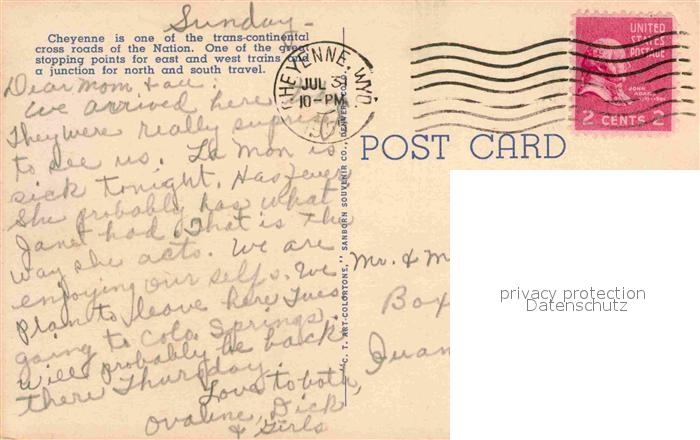 Sunday -
Cheyenne is one of the trans-continental
cross roads of the Nation. One of the great
stopping points for east and west trains and
a junction for north and south travel.
Dear Mom, & all:
We arrived here
They were really suprised
to see us. La Mon is
sick tonight. Has fever
She probably has what
Janet had. That is the
way she acts. We are
enjoying our selfs. We
plan to leave here Tues
going to Colo. Springs.
will probably be back
there Thursday.
Love to both,
Ovaline, Dick
& Girls
CHEYENNE, WYO.
JUL 31
10 - PM
UNITED
STATES
POSTAGE
JOHN
ADAMS
2 CENTS 2
POST CARD
"C. T. ART-COLORTONE," SANBORN SOUVENIR CO., DENVER, COLO.
Mr. & M
Box
Juan
privacy protection
Datenschutz